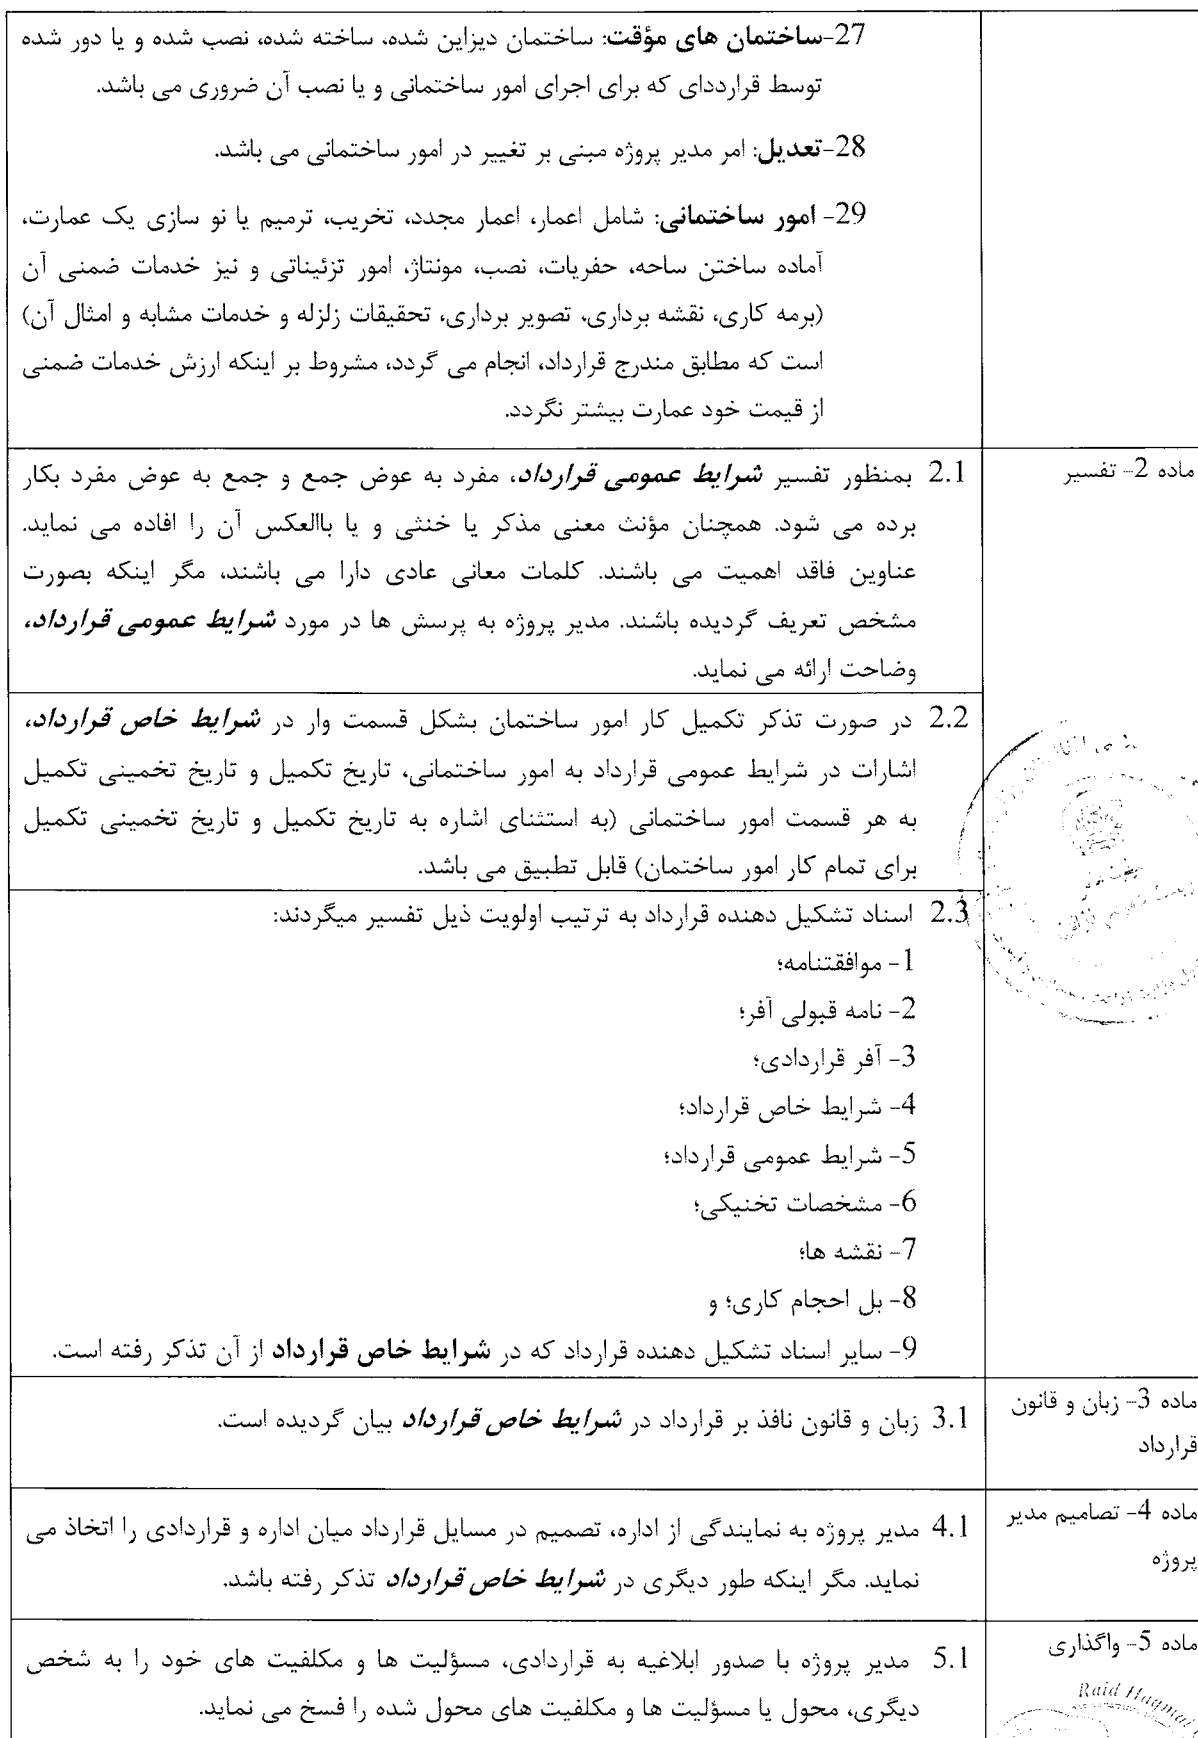 27-ساختمان های مؤقت: ساختمان دیزاین شده، ساخته شده، نصب شده و یا دور شده
توسط قرارددای که برای اجرای امور ساختمانی و یا نصب آن ضروری می باشد.
28-تعدیل: امر مدیر پروژه مبنی بر تغییر در امور ساختمانی می باشد.
29- امور ساختمانی: شامل اعمار، اعمار مجدد، تخریب، ترمیم یا نو سازی یک عمارت،
آماده ساختن ساحه، حفریات، نصب، مونتاژ، امور تزئیناتی و نیز خدمات ضمنی آن
(برمه کاری، نقشه برداری، تصویر برداری، تحقیقات زلزله و خدمات مشابه و امثال آن)
است که مطابق مندرج قرارداد، انجام می گردد، مشروط بر اینکه ارزش خدمات ضمنی
از قیمت خود عمارت بیشتر نگردد.
ماده 2- تفسیر
2.1 بمنظور تفسیر شرایط عمومی قرارداد، مفرد به عوض جمع و جمع به عوض مفرد بکار
برده می شود. همچنان مؤنث معنی مذکر یا خنثی و یا باالعکس آن را افاده می نماید.
عناوین فاقد اهمیت می باشند. کلمات معانی عادی دارا می باشند، مگر اینکه بصورت
مشخص تعریف گردیده باشند. مدیر پروژه به پرسش ها در مورد شرایط عمومی قرارداد،
وضاحت ارائه می نماید.
2.2 در صورت تذکر تکمیل کار امور ساختمان بشکل قسمت وار در شرایط خاص قرارداد،
اشارات در شرایط عمومی قرارداد به امور ساختمانی، تاریخ تکمیل و تاریخ تخمینی تکمیل
به هر قسمت امور ساختمانی (به استثنای اشاره به تاریخ تکمیل و تاریخ تخمینی تکمیل
برای تمام کار امور ساختمان) قابل تطبیق می باشد.
2.3 اسناد تشکیل دهنده قرارداد به ترتیب اولویت ذیل تفسیر میگردند:
1- موافقتنامه؛
2- نامه قبولی آفر؛
3- آفر قراردادی؛
4- شرایط خاص قرارداد؛
5- شرایط عمومی قرارداد؛
6- مشخصات تخنیکی؛
7- نقشه ها؛
8- بل احجام کاری؛ و
9- سایر اسناد تشکیل دهنده قرارداد که در شرایط خاص قرارداد از آن تذکر رفته است.
ماده 3- زبان و قانون
قرارداد
3.1 زبان و قانون نافذ بر قرارداد در شرایط خاص قرارداد بیان گردیده است.
ماده 4- تصامیم مدیر
پروژه
4.1 مدیر پروژه به نمایندگی از اداره، تصمیم در مسایل قرارداد میان اداره و قراردادی را اتخاذ می
نماید. مگر اینکه طور دیگری در شرایط خاص قرارداد تذکر رفته باشد.
ماده 5- واگذاری
5.1 مدیر پروژه با صدور ابلاغیه به قراردادی، مسؤلیت ها و مکلفیت های خود را به شخص
دیگری، محول یا مسؤلیت ها و مکلفیت های محول شده را فسخ می نماید.
Raid Haqmal